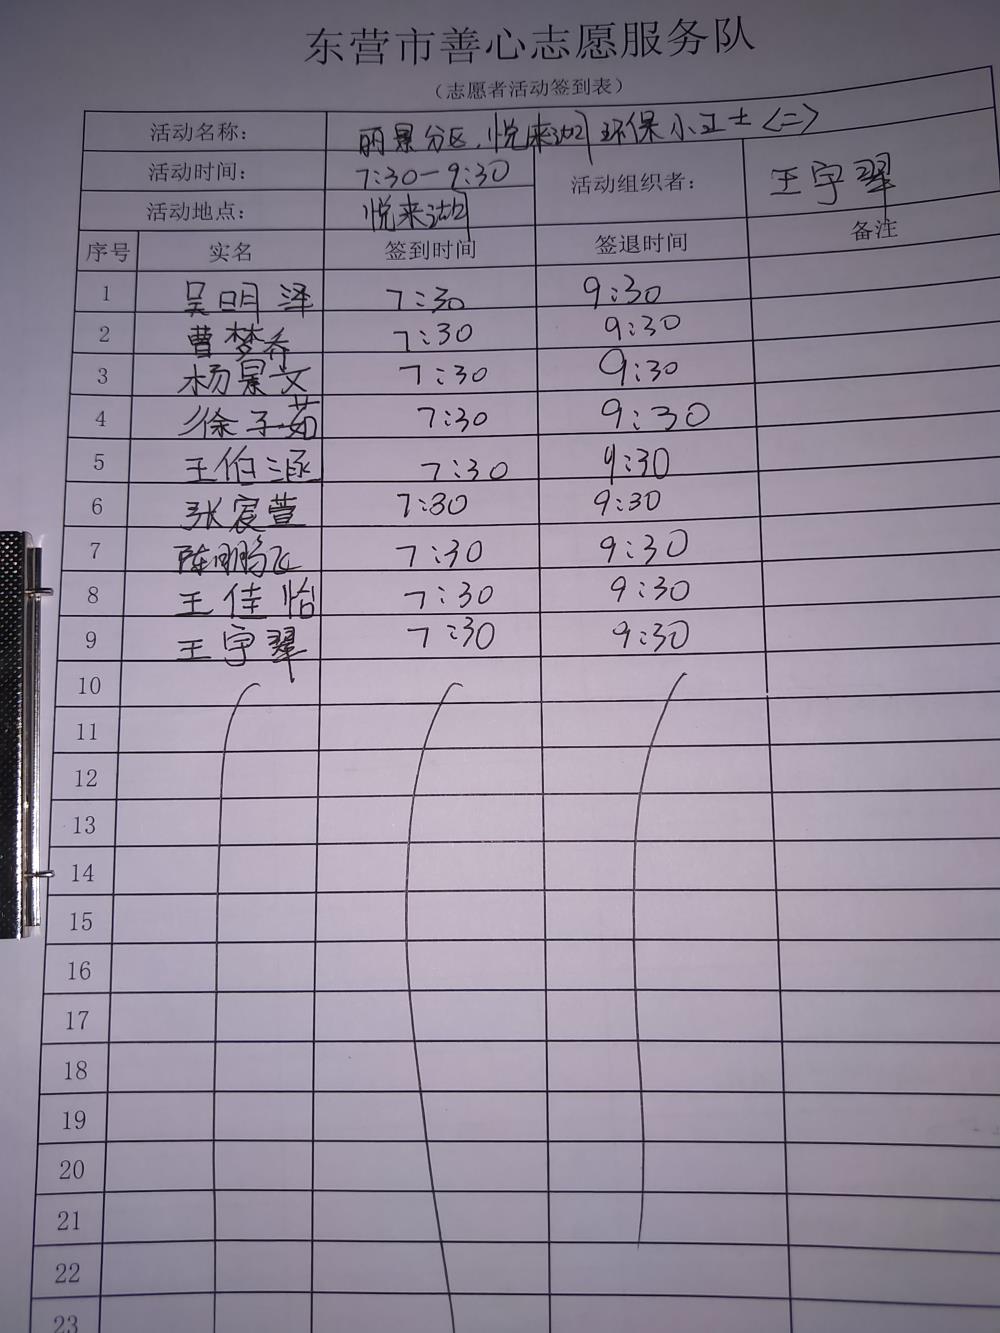 东营市善心志愿服务队
（志愿者活动签到表）
活动名称： 丽景分区，悦来湖环保小卫士<二>
活动时间： 7:30-9:30 活动组织者： 王宇翠
活动地点： 悦来湖
序号 实名 签到时间 签退时间 备注
1 吴明泽 7:30 9:30
2 曹梦乔 7:30 9:30
3 杨景文 7:30 9:30
4 徐子茹 7:30 9:30
5 王伯涵 7:30 9:30
6 张宸萱 7:30 9:30
7 陈鹏飞 7:30 9:30
8 王佳怡 7:30 9:30
9 王宇翠 7:30 9:30
10
11
12
13
14
15
16
17
18
19
20
21
22
23